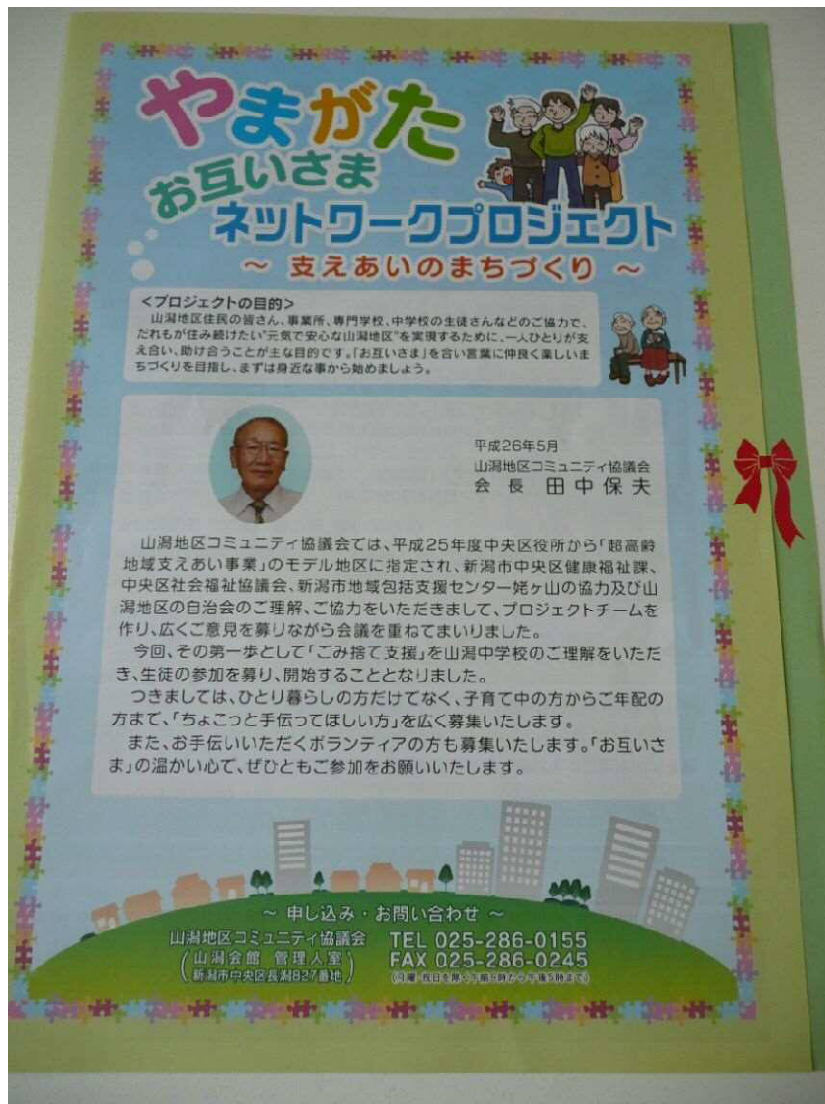 やまがた
お互いさま
ネットワークプロジェクト
~ 支えあいのまちづくり ~
<プロジェクトの目的>
山潟地区住民の皆さん、事業所、専門学校、中学校の生徒さんなどのご協力で、
だれもが住み続けたい"元気で安心な山潟地区"を実現するために、一人ひとりが支
え合い、助け合うことが主な目的です。「お互いさま」を合い言葉に仲良く楽しいま
ちづくりを目指し、まずは身近な事から始めましょう。
平成26年5月
山潟地区コミュニティ協議会
会 長 田 中 保 夫
山潟地区コミュニティ協議会では、平成25年度中央区役所から「超高齢
地域支えあい事業」のモデル地区に指定され、新潟市中央区健康福祉課、
中央区社会福祉協議会、新潟市地域包括支援センター姥ヶ山の協力及び山
潟地区の自治会のご理解、ご協力をいただきまして、プロジェクトチームを
作り、広くご意見を募りながら会議を重ねてまいりました。
今回、その第一歩として「ごみ捨て支援」を山潟中学校のご理解をいただ
き、生徒の参加を募り、開始することとなりました。
つきましては、ひとり暮らしの方だけでなく、子育て中の方からご年配の
方まで、「ちょこっと手伝ってほしい方」を広く募集いたします。
また、お手伝いいただくボランティアの方も募集いたします。「お互いさ
ま」の温かい心で、ぜひともご参加をお願いいたします。
~ 申し込み・お問い合わせ ~
山潟地区コミュニティ協議会
(山潟会館 管理人室
新潟市中央区長潟827番地)
TEL 025-286-0155
FAX 025-286-0245
(月曜・祝日を除く午前9時から午後5時まで)